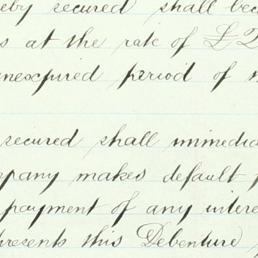 eby secured shall bec
s at the rate of £
unexpired period of
secured shall immedia
mpany makes default
payment of any intere
presents this Debenture